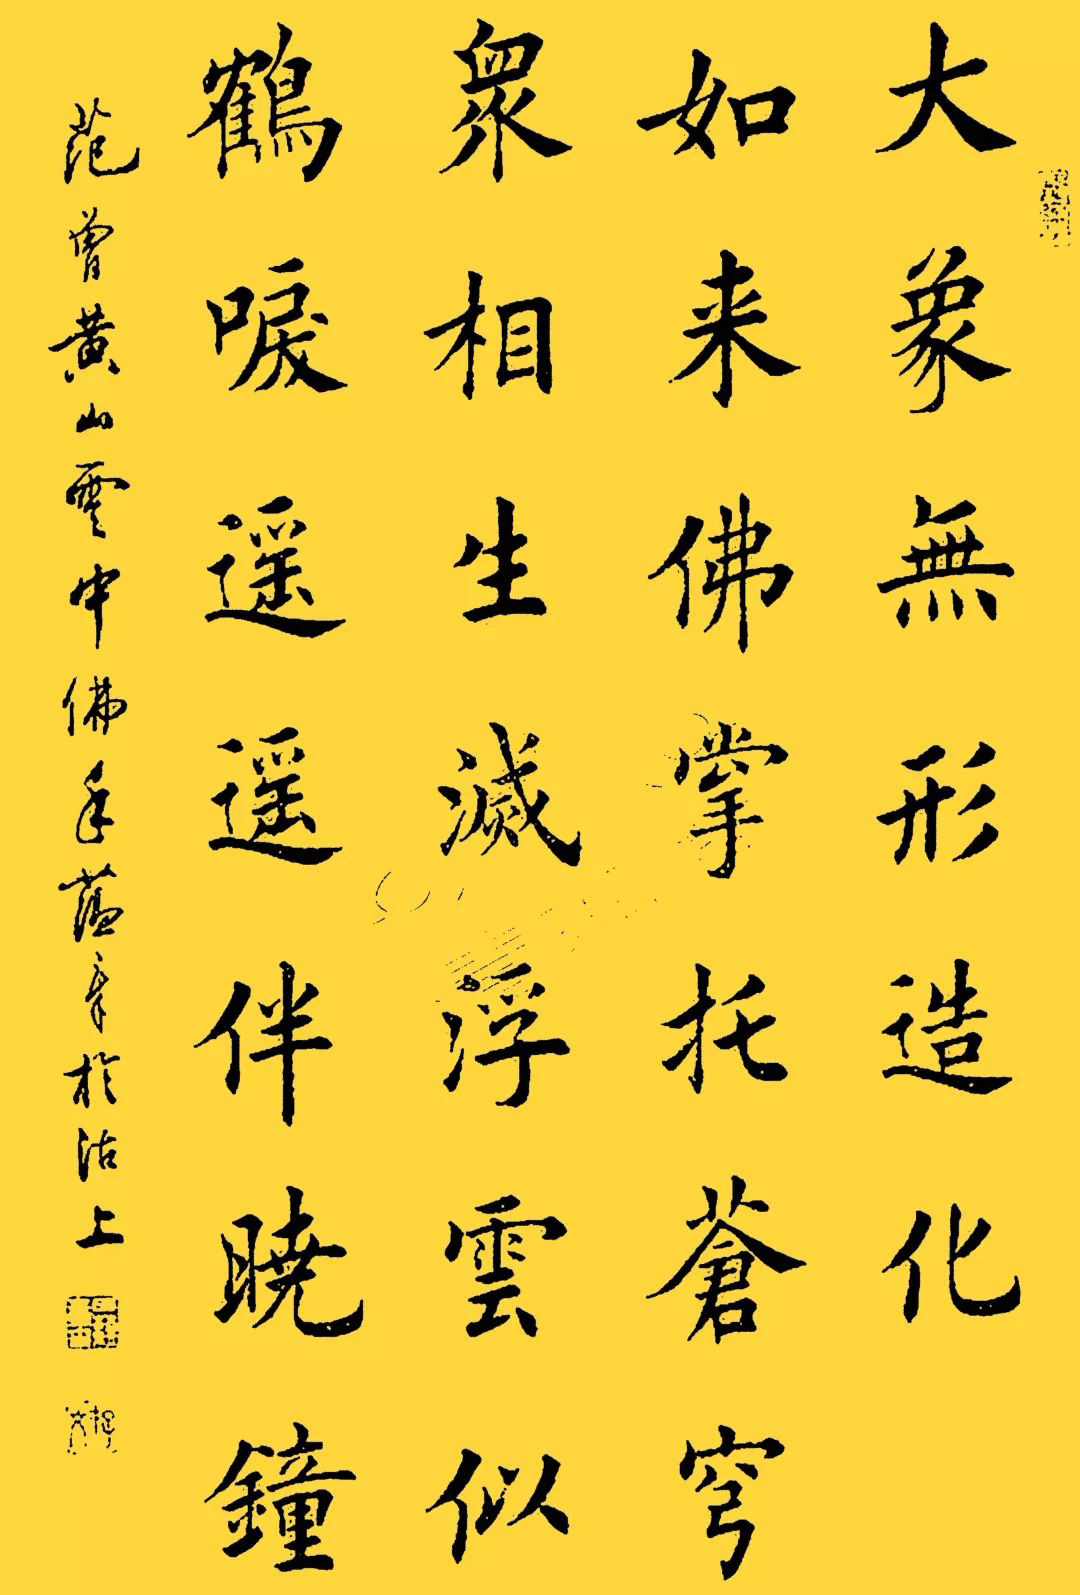 大象無形造化
如来佛掌托蒼穹
衆相生滅浮雲似
鶴唳遥遥伴曉鐘
范曾黄山雲中佛手蘊章於沽上